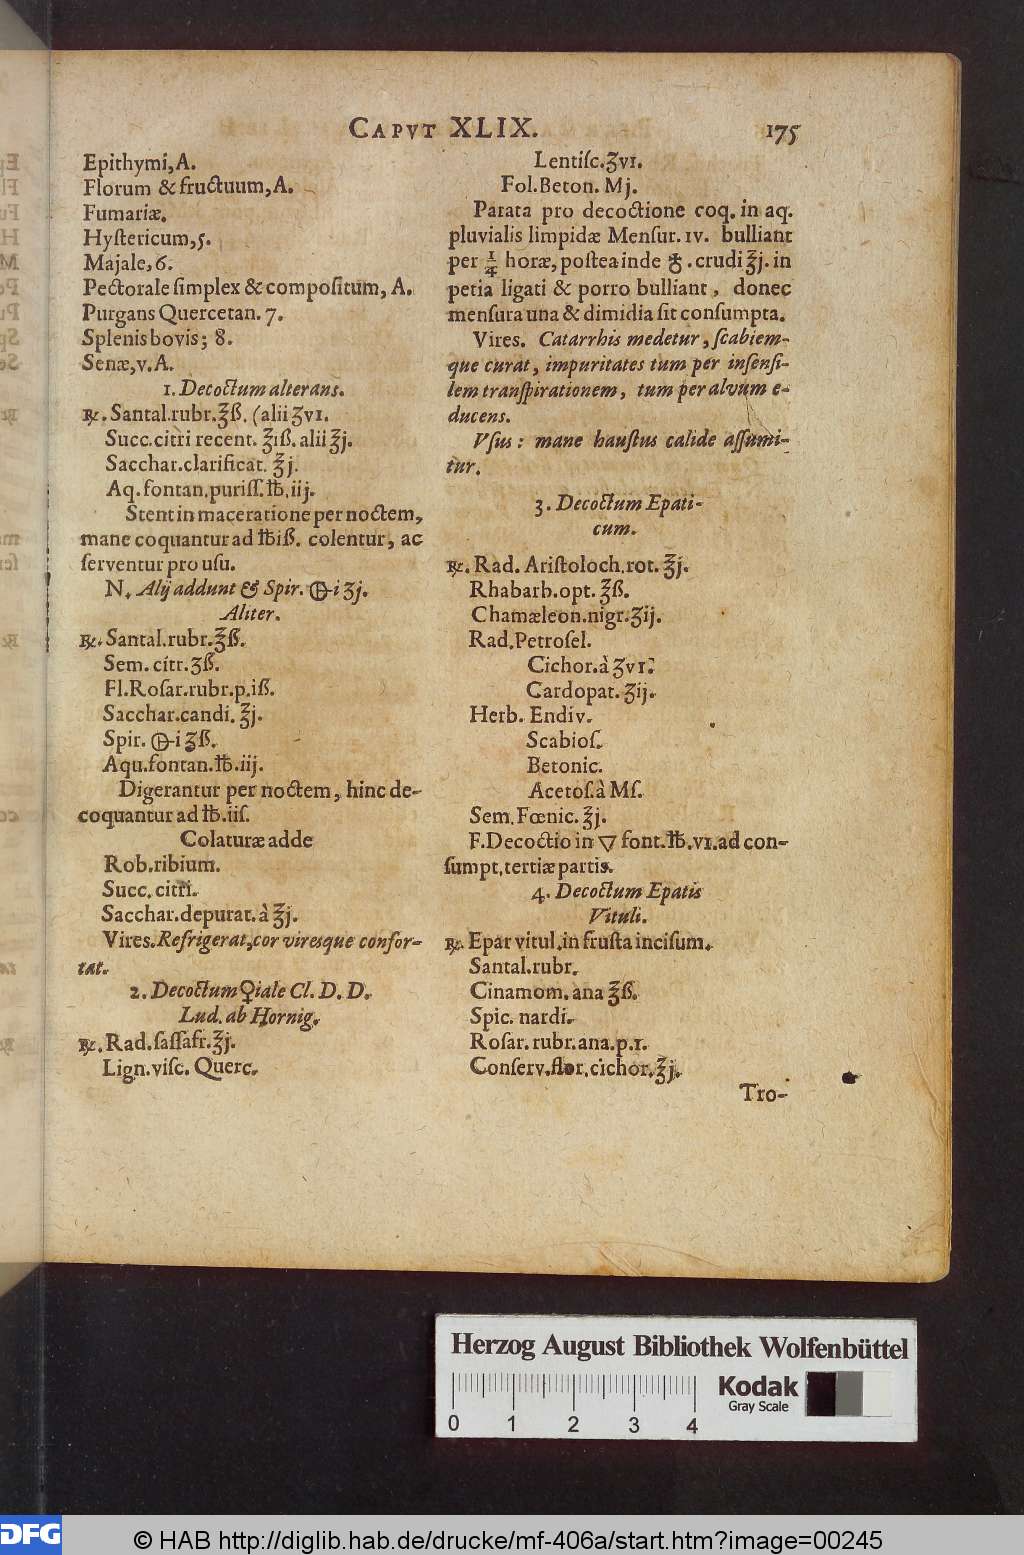 CAPVT XLIX. 175
Epithymi, A.
Florum & fructuum, A.
Fumariæ.
Hyſtericum, 5.
Majale, 6.
Pectorale ſimplex & compoſitum, A.
Purgans Quercetan. 7.
Splenis bovis; 8.
Senæ, v. A.
1. Decoctum alterans.
℞. Santal. rubr. ℥ß. (alii ʒvı.
Succ. citri recent. ℥ıß. alii ℥j.
Sacchar. clarificat. ℥j.
Aq. fontan. puriſſ. ℔. iij.
Stent in maceratione per noctem,
mane coquantur ad ℔iß. colentur, ac
ſerventur pro uſu.
N. Alij addunt & Spir. 🜖i ʒj.
Aliter.
℞. Santal. rubr. ℥ß.
Sem. citr. ʒß.
Fl. Roſar. rubr. p. iß.
Sacchar. candi. ℥j.
Spir. 🜖i ʒß.
Aqu. fontan. ℔. iij.
Digerantur per noctem, hinc de-
coquantur ad ℔. iiſ.
Colaturæ adde
Rob. ribium.
Succ. citri.
Sacchar. depurat. à ℥j.
Vires. Refrigerat, cor viresque confor-
tat.
2. Decoctum ♀iale Cl. D. D.
Lud. ab Hornig.
℞. Rad. ſaſſafr. ℥j.
Lign. viſc. Querc.
Lentiſc. ʒvı.
Fol. Beton. Mj.
Parata pro decoctione coq. in aq.
pluvialis limpidæ Menſur. ıv. bulliant
per 1/4 horæ, poſtea inde ♁. crudi ℥j. in
petia ligati & porro bulliant, donec
menſura una & dimidia ſit conſumpta.
Vires. Catarrhis medetur, ſcabiem-
que curat, impuritates tum per inſenſi-
lem tranſpirationem, tum per alvum e-
ducens.
Vſus: mane hauſtus calide aſſumi-
tur.
3. Decoctum Epati-
cum.
℞. Rad. Ariſtoloch. rot. ℥j.
Rhabarb. opt. ℥ß.
Chamæleon. nigr. ʒij.
Rad. Petroſel.
Cichor. à ʒvı.
Cardopat. ʒij.
Herb. Endiv.
Scabioſ.
Betonic.
Acetoſ. à Mſ.
Sem. Fœnic. ℥j.
F. Decoctio in ▽ font. ℔. vı. ad con-
ſumpt. tertiæ partis.
4. Decoctum Epatis
Vituli.
℞. Epar vitul. in fruſta inciſum.
Santal. rubr.
Cinamom. ana ℥ß.
Spic. nardi.
Roſar. rubr. ana. p. ı.
Conſerv. flor. cichor. ℥j.
Tro-
Herzog August Bibliothek Wolfenbüttel
Kodak
Gray Scale
0 1 2 3 4
DFG
© HAB http://diglib.hab.de/drucke/mf-406a/start.htm?image=00245